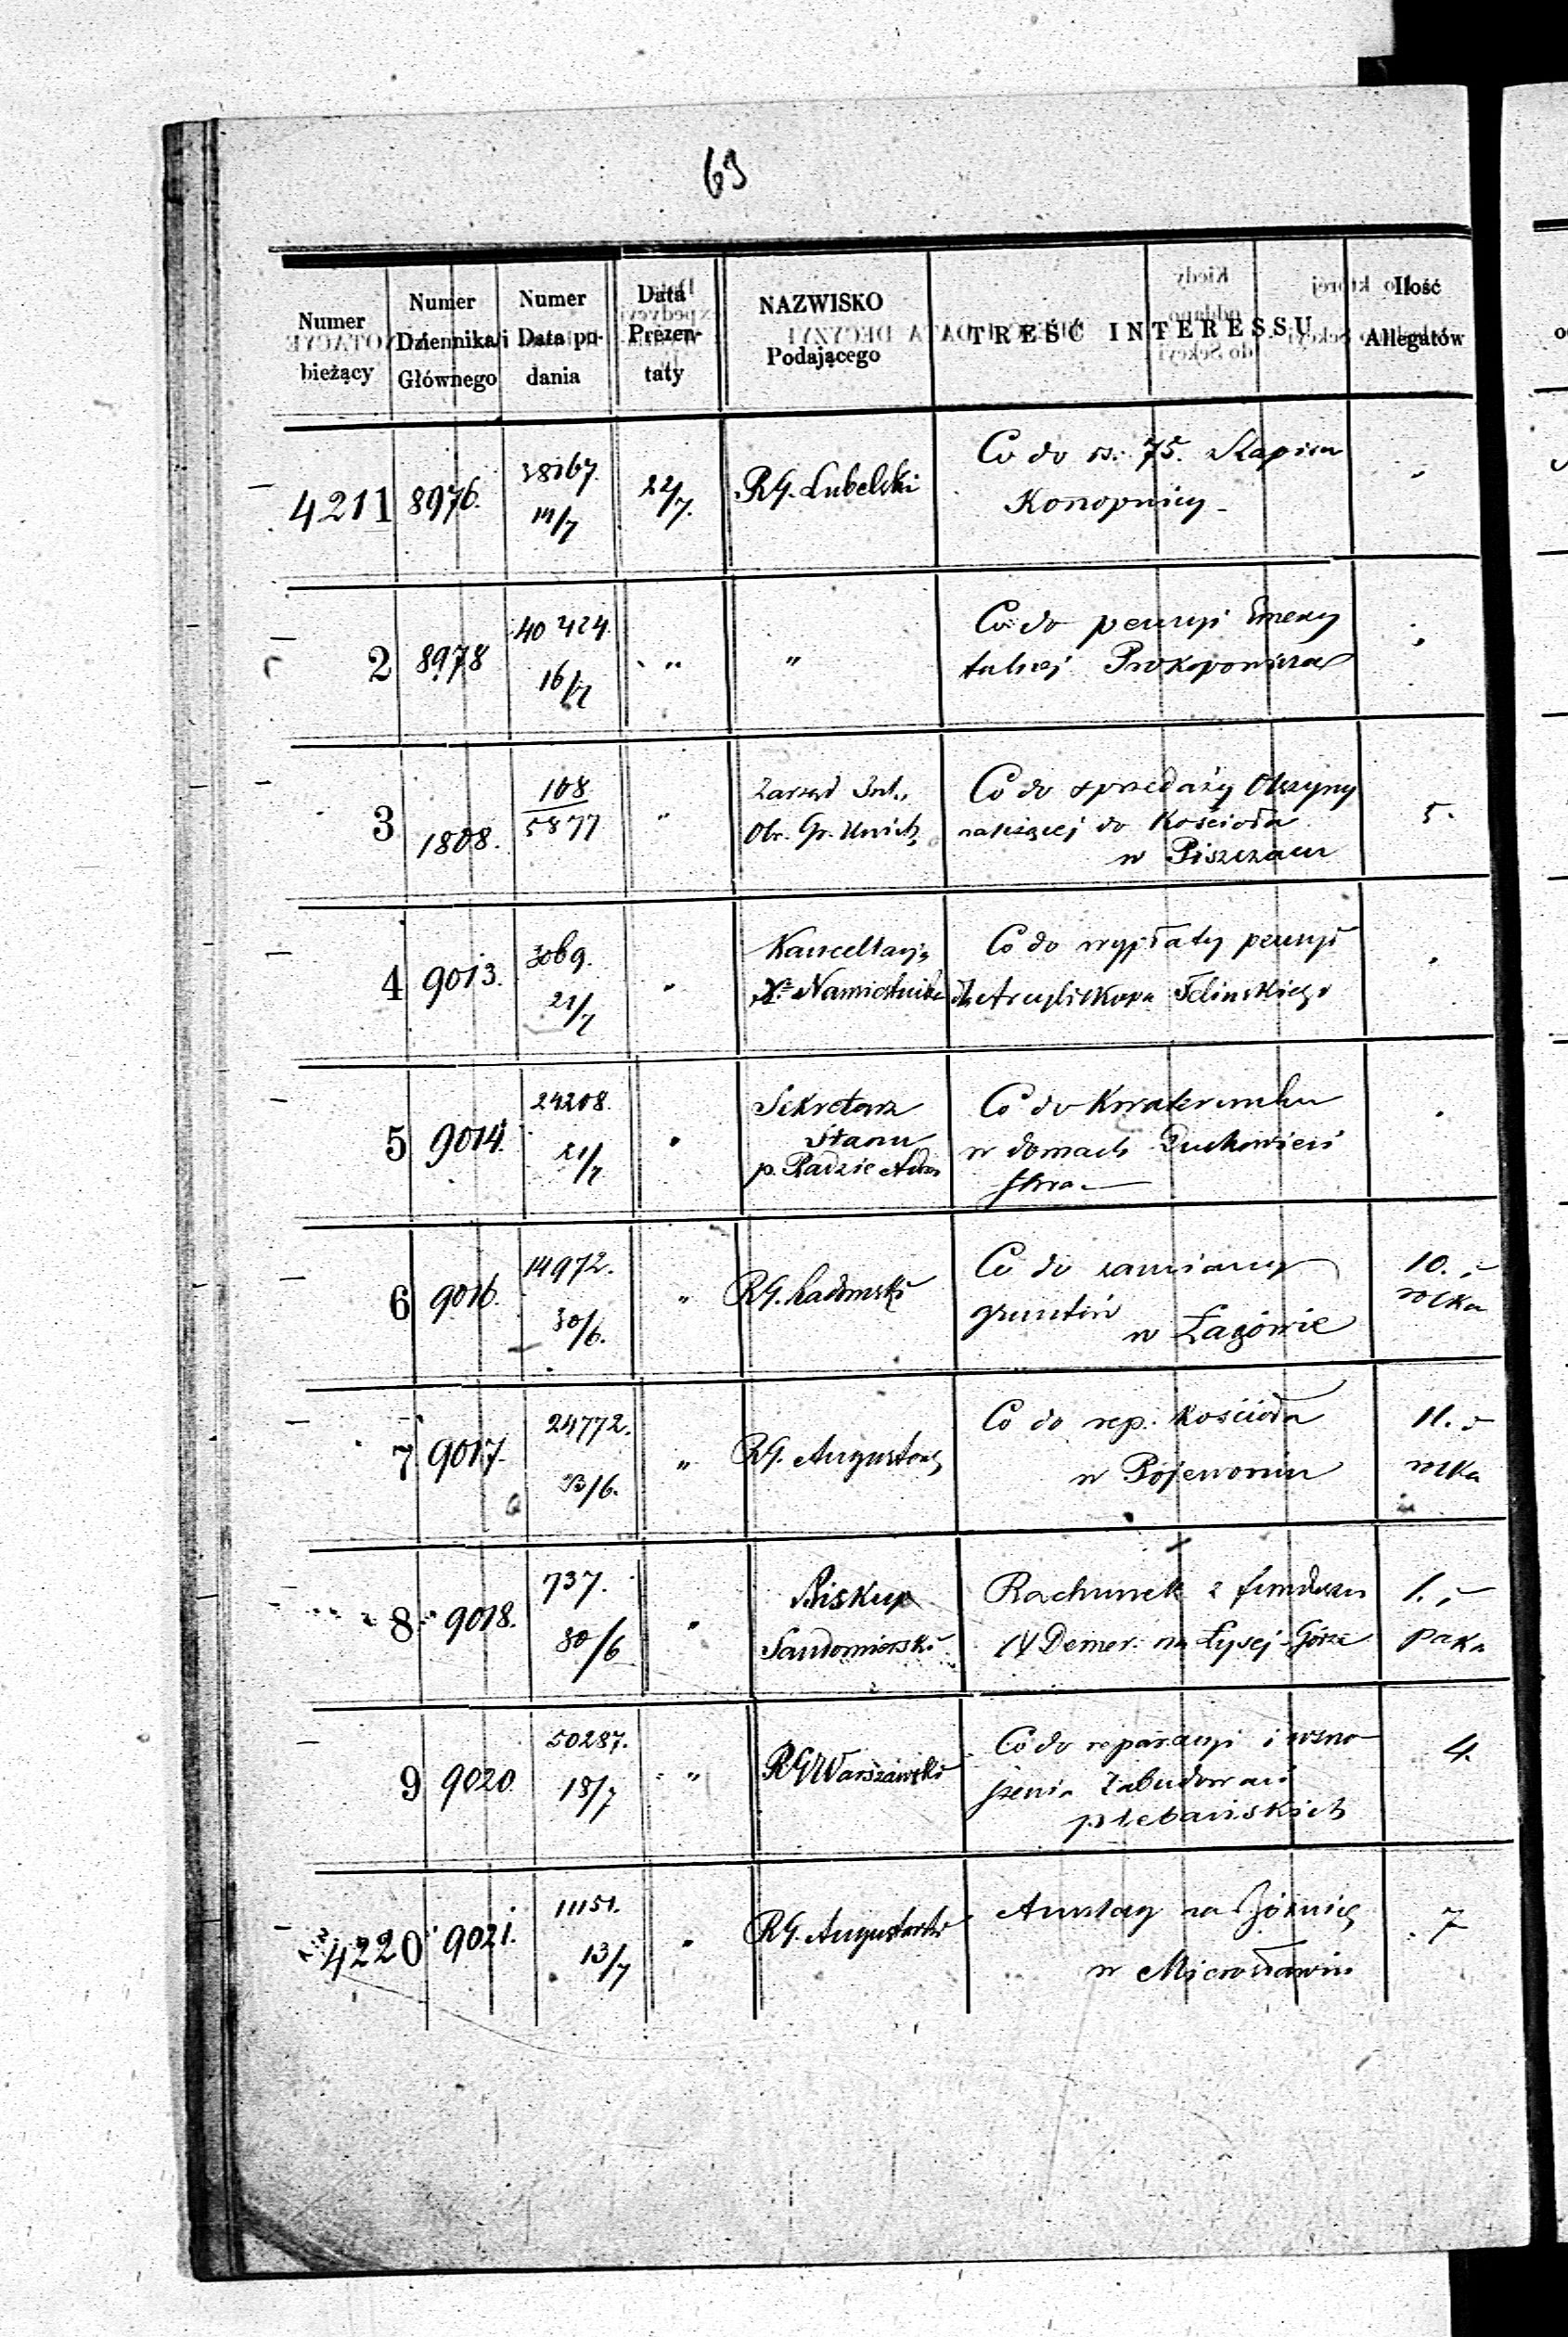 69
Numer bieżący | Numer Dziennika Głównego | Numer i Data podania | Data Prezentaty | NAZWISKO Podającego | TREŚĆ INTERESSU | Ilość Allegatów
4211 | 8976. | 38167. 14/7 | 22/7. | RG. Lubelski | Co do rs. 75. Konopnicy
2 | 8978 | 40424. 16/7 | " | " | Co do pensyi Emery
talnej Prokopowicza
3 | 1808. | 108 5877 | " | Zarząd Int. | Co do sprzedaży Olszyny | 5.
Ob. Gr. Unick. | należącej do Kościoła
w Piszczacu
4 | 9013. | 3069. 21/7 | " | Kancellaryi | Co do wypłaty pensyi
Xa Namiestnika | dla Arcybiskupa Felinskiego
5 | 9014. | 24208. 21/7 | " | Sekretarz | Co do Kwaterunku
Stanu | w domach Duchowień
p. Radzie Adm | stwa
6 | 9016. | 14972. 30/6. | " | RG. Radomski | Co do zamiany | 10.
gruntów | roczka
w Łagowie
7 | 9017. | 24772. 23/6. | " | RG. Augustows | Co do rep. Kościoła | 11.
w Pojewoniu
8 | 9018. | 737. 30/6 | " | Biskup | Rachunek z funduszu | 1.
Sandomierski | XX Demer. na Łysej Górze | paka
9 | 9020 | 50287. 18/7 | " | RG Warszawski | Co do reparacyi i wzno | 4.
szenia Zabudowań
plebańskich
4220 | 9021. | 11151. 13/7 | " | RG. Augustowski | Anszlag na Bóżnicę | 7
w Mirosławiu